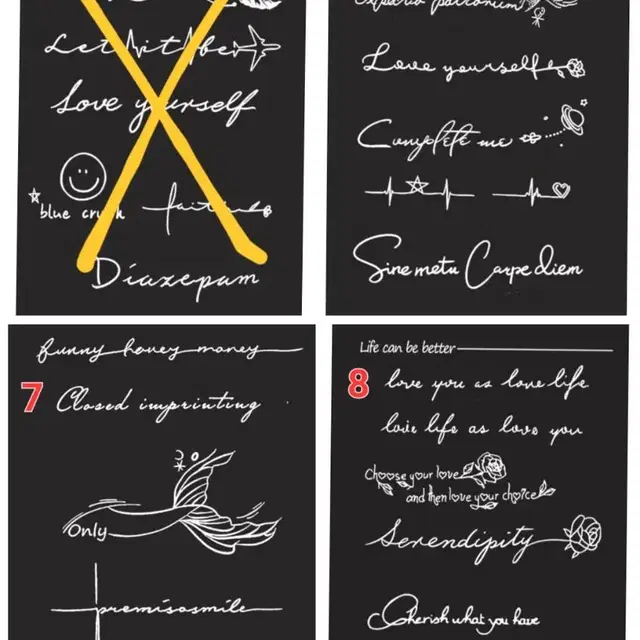 Let it be
Love yourself
blue crush
faith
Diazepam
Expecto patronum
Love yourself
Complete me
Sine metu Carpe diem
funny honey money
7
Closed imprinting
Only
premisasmile
Life can be better
8
love you as love life
love life as love you
Choose your love
and then love your choice
Serendipity
Cherish what you have